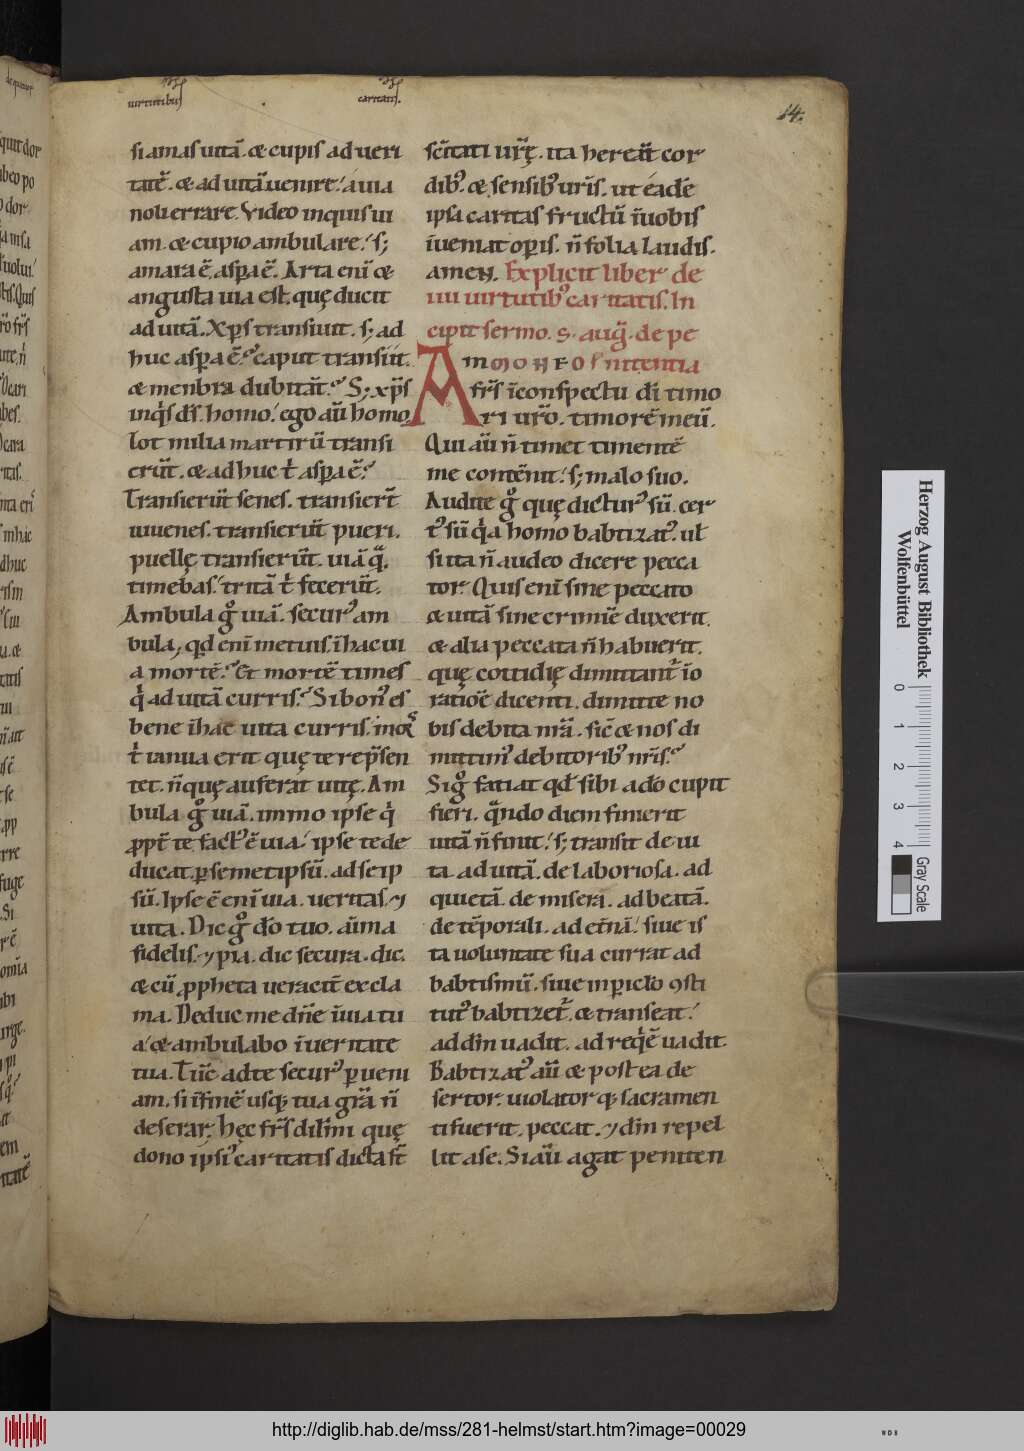 uirtutibus
caritatis.
14.
si amas uitā. & cupis ad ueri
tatē. & ad uitā uenire. a uia
noli errare. Video inquis ui
am. & cupio ambulare. s;
amara ē. aspa ē. Arta enī &
angusta uia est. quę ducit
ad uitā. Xp̄s transiuit. s; ad
huc aspa ē. caput transiit.
& menbra dubitāt. S; xp̄s
inqͥs dī. homo. ego aū homo.
Tot milia martirū transi
erūt. & adhuc t̄ aspa ē.
Transierūt senes. transiert̄
iuuenes. transierūt pueri.
puellę transierūt. uiā q̄.
timebas. tritā t̄ fecerūt.
Ambula gͦ uiā. securꝰ am
bula, qd enī metuis. ī hac ui
a mortē. Et mortē times
qͥ ad uitā curris. Si bonꝰ es
bene ī hac uita curris. mox
t̄ ianua erit quę te rep̄sen
tet. n̄ quę auferat uitę. Am
bula gͦ uiā. immo ipse qͥ
ꝓpt̄ te factꝰ ē uia. ipse te de
ducat. ꝑ semetipsū. ad se ip
sū. Ipse ē enī uia. ueritas. ⁊
uita. Dic gͦ dō tuo. aīma
fidelis. ⁊ pia. dic secura. dic.
& cū ꝓpheta ueracit̄ excla
ma. Deduc me dn̄e ī uia tu
a. & ambulabo ī ueritate
tua. Tūc ad te securꝰ ꝑueni
am. si ī fine usq; tua gr̄a n̄
deserar. hęc fr̄s dilmi quę
dono ipsiꝰ caritatis dicta st̄
sc̄itati ur̄ę. ita hereāt cor
dibꝰ. & sensibꝰ uris. ut eadē
ipsa caritas fructū ī uobis
īueniat opis. n̄ folia laudis.
amen. Explicit liber de
iiii uirtutibꝰ caritatis. In
cipit sermo. S. aug̅. de pe
nitentia
Amonro
fr̄s ī conspectu dī timo
ri uro. timorē meū.
Qui aū n̄ timet timentē
me contēnit. s; malo suo.
Audite gͦ quę dicturꝰ sū. cer
tꝰ sū qͥa homo babtizatꝰ. ul
si ita n̄ audeo dicere pecca
tor. Quis enī sine peccato
& uitā sine crimīe duxerit.
& alia peccata n̄ habuerit.
quę cottidię dimittant̄ ī o
ratioē dicenti. dimitte no
bis debita nr̄a. sic̄ & nos di
mittimꝰ debitoribꝰ nr̄is.
Sigͦ fatiat qd sibi a dō cupit
fieri. q̄ndo diem finierit
uitā n̄ finit. s; transit de ui
ta. ad uitā. de laboriosa. ad
quietā. de miserā. ad beatā.
de tēporali. ad et̄nā. siue is
ta uoluntate sua currat ad
babtismū. siue in piclo ꝯsti
tutꝰ babtizet̄. & transeat.
ad dn̄m uadit. ad reqͥē uadit.
Babtizatꝰ aū & postea de
sertor. uiolator q; sacramen
ti fuerit. peccat. ⁊ dn̄m repel
lit a se. Si aū agat peniten
Herzog August Bibliothek
Wolfenbüttel
0 1 2 3 4
Gray Scale
http://diglib.hab.de/mss/281-helmst/start.htm?image=00029
WDB